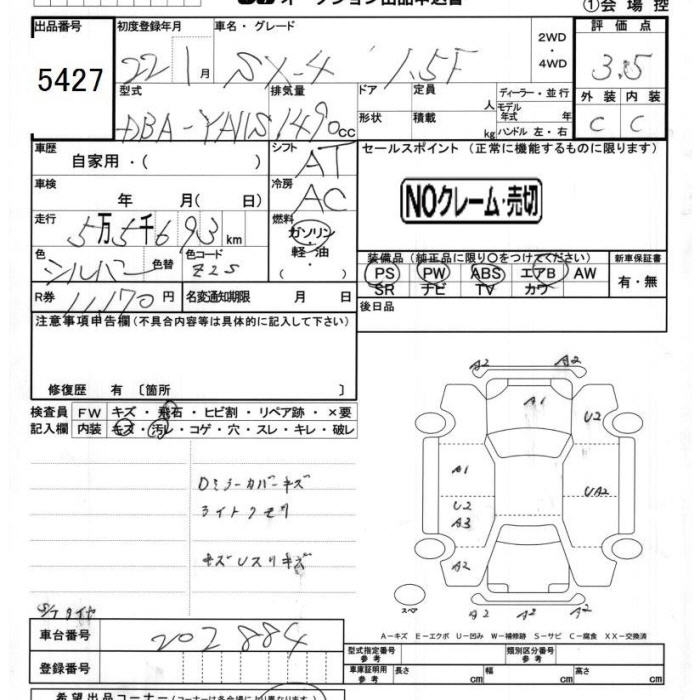 ①会場控
出品番号
5427
初度登録年月
22 1月
車名・グレード
SX-4 1.5F
2WD
・
4WD
評価点
3.5
型式
DBA-YA11S
排気量
1490cc
ドア
定員
人
ディーラー・並行
モデル年式 年
形状
積載
kg
ハンドル 左・右
外装 内装
C C
車歴
自家用・( )
シフト
AT
セールスポイント (正常に機能するものに限ります)
NOクレーム・売切
車検
年 月( 日)
冷房
AC
走行
5万5千693km
燃料
ガソリン・
軽・油
・
色
シルバー
色替
色コード
Z2S
装備品(純正品に限り○をつけてください)
PS PW ABS エアB AW
SR ナビ TV カワ
新車保証書
有・無
R券
11,170円
名変通知期限 月 日
後日品
注意事項申告欄(不具合内容等は具体的に記入して下さい)
修復歴 有〔箇所 〕
検査員 FW キズ・飛石・ヒビ割・リペア跡・×要
記入欄 内装 キズ・汚レ・コゲ・穴・スレ・キレ・破レ
Dミラーカバーキズ
ライトクモリ
A2 A2
A1
U2
A1
U2
UA2
A3
A2
A2 A2 A2
スペ
A-キズ E-エクボ U-凹み W-補修跡 S-サビ C-腐食 XX-交換済
車台番号
202884
型式指定番号
参考
類別区分番号
参考
登録番号
車庫証明用
参考
長さ cm 幅 cm 高さ cm
希望出品コーナー